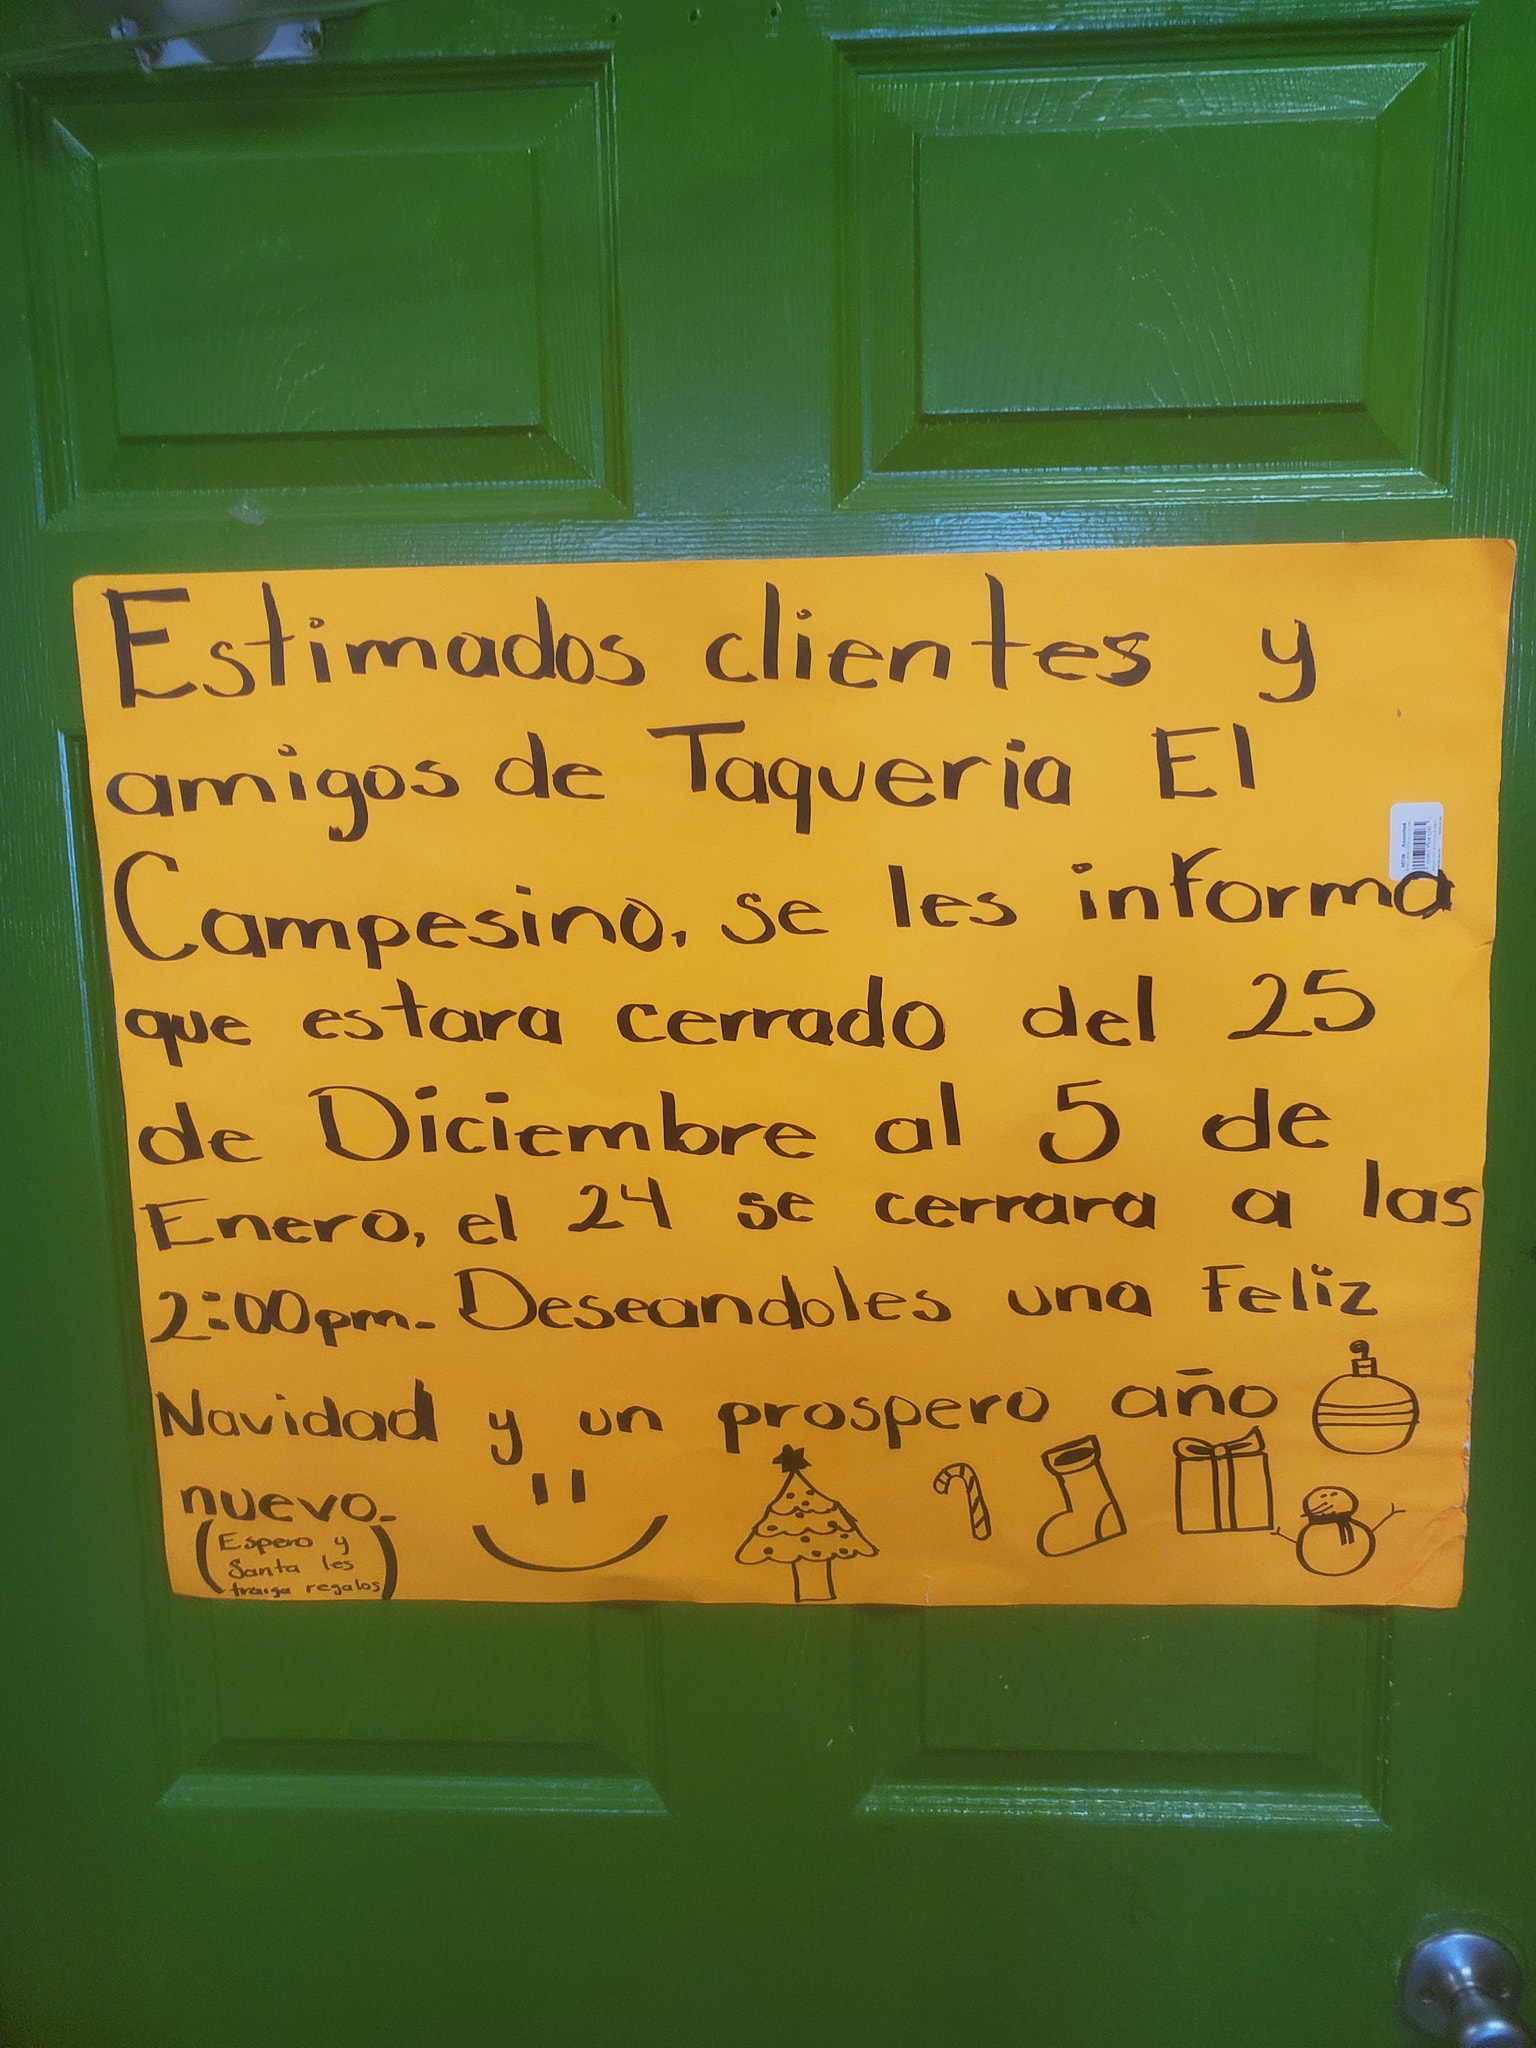 Estimados clientes y
amigos de Taqueria El
Campesino, se les informa
que estara cerrado del 25
de Diciembre al 5 de
Enero, el 24 se cerrara a las
2:00pm. Deseandoles una Feliz
Navidad y un prospero año
nuevo.
(Espero y
Santa les
traiga regalos)